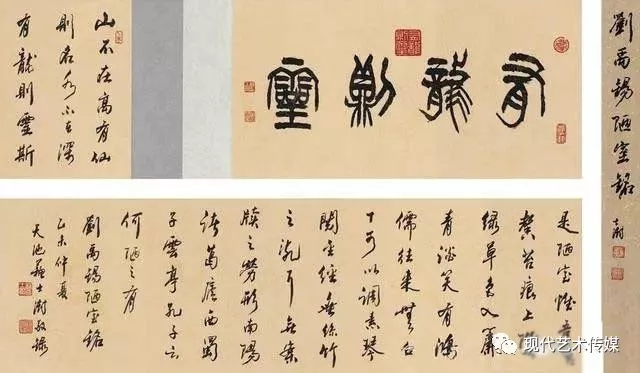 劉禹錫陋室銘
士澍
有龍則靈
山不在高有仙
則名水不在深
有龍則靈斯
是陋室惟吾
馨苔痕上
綠草色入簾
青談笑有鴻
儒往來無白
丁可以調素琴
閱金經無絲竹
之亂耳無案
牘之勞形南陽
諸葛廬西蜀
子雲亭孔子云
何陋之有
劉禹錫陋室銘
乙未仲夏
天池蘇士澍敬錄
现代艺术传媒